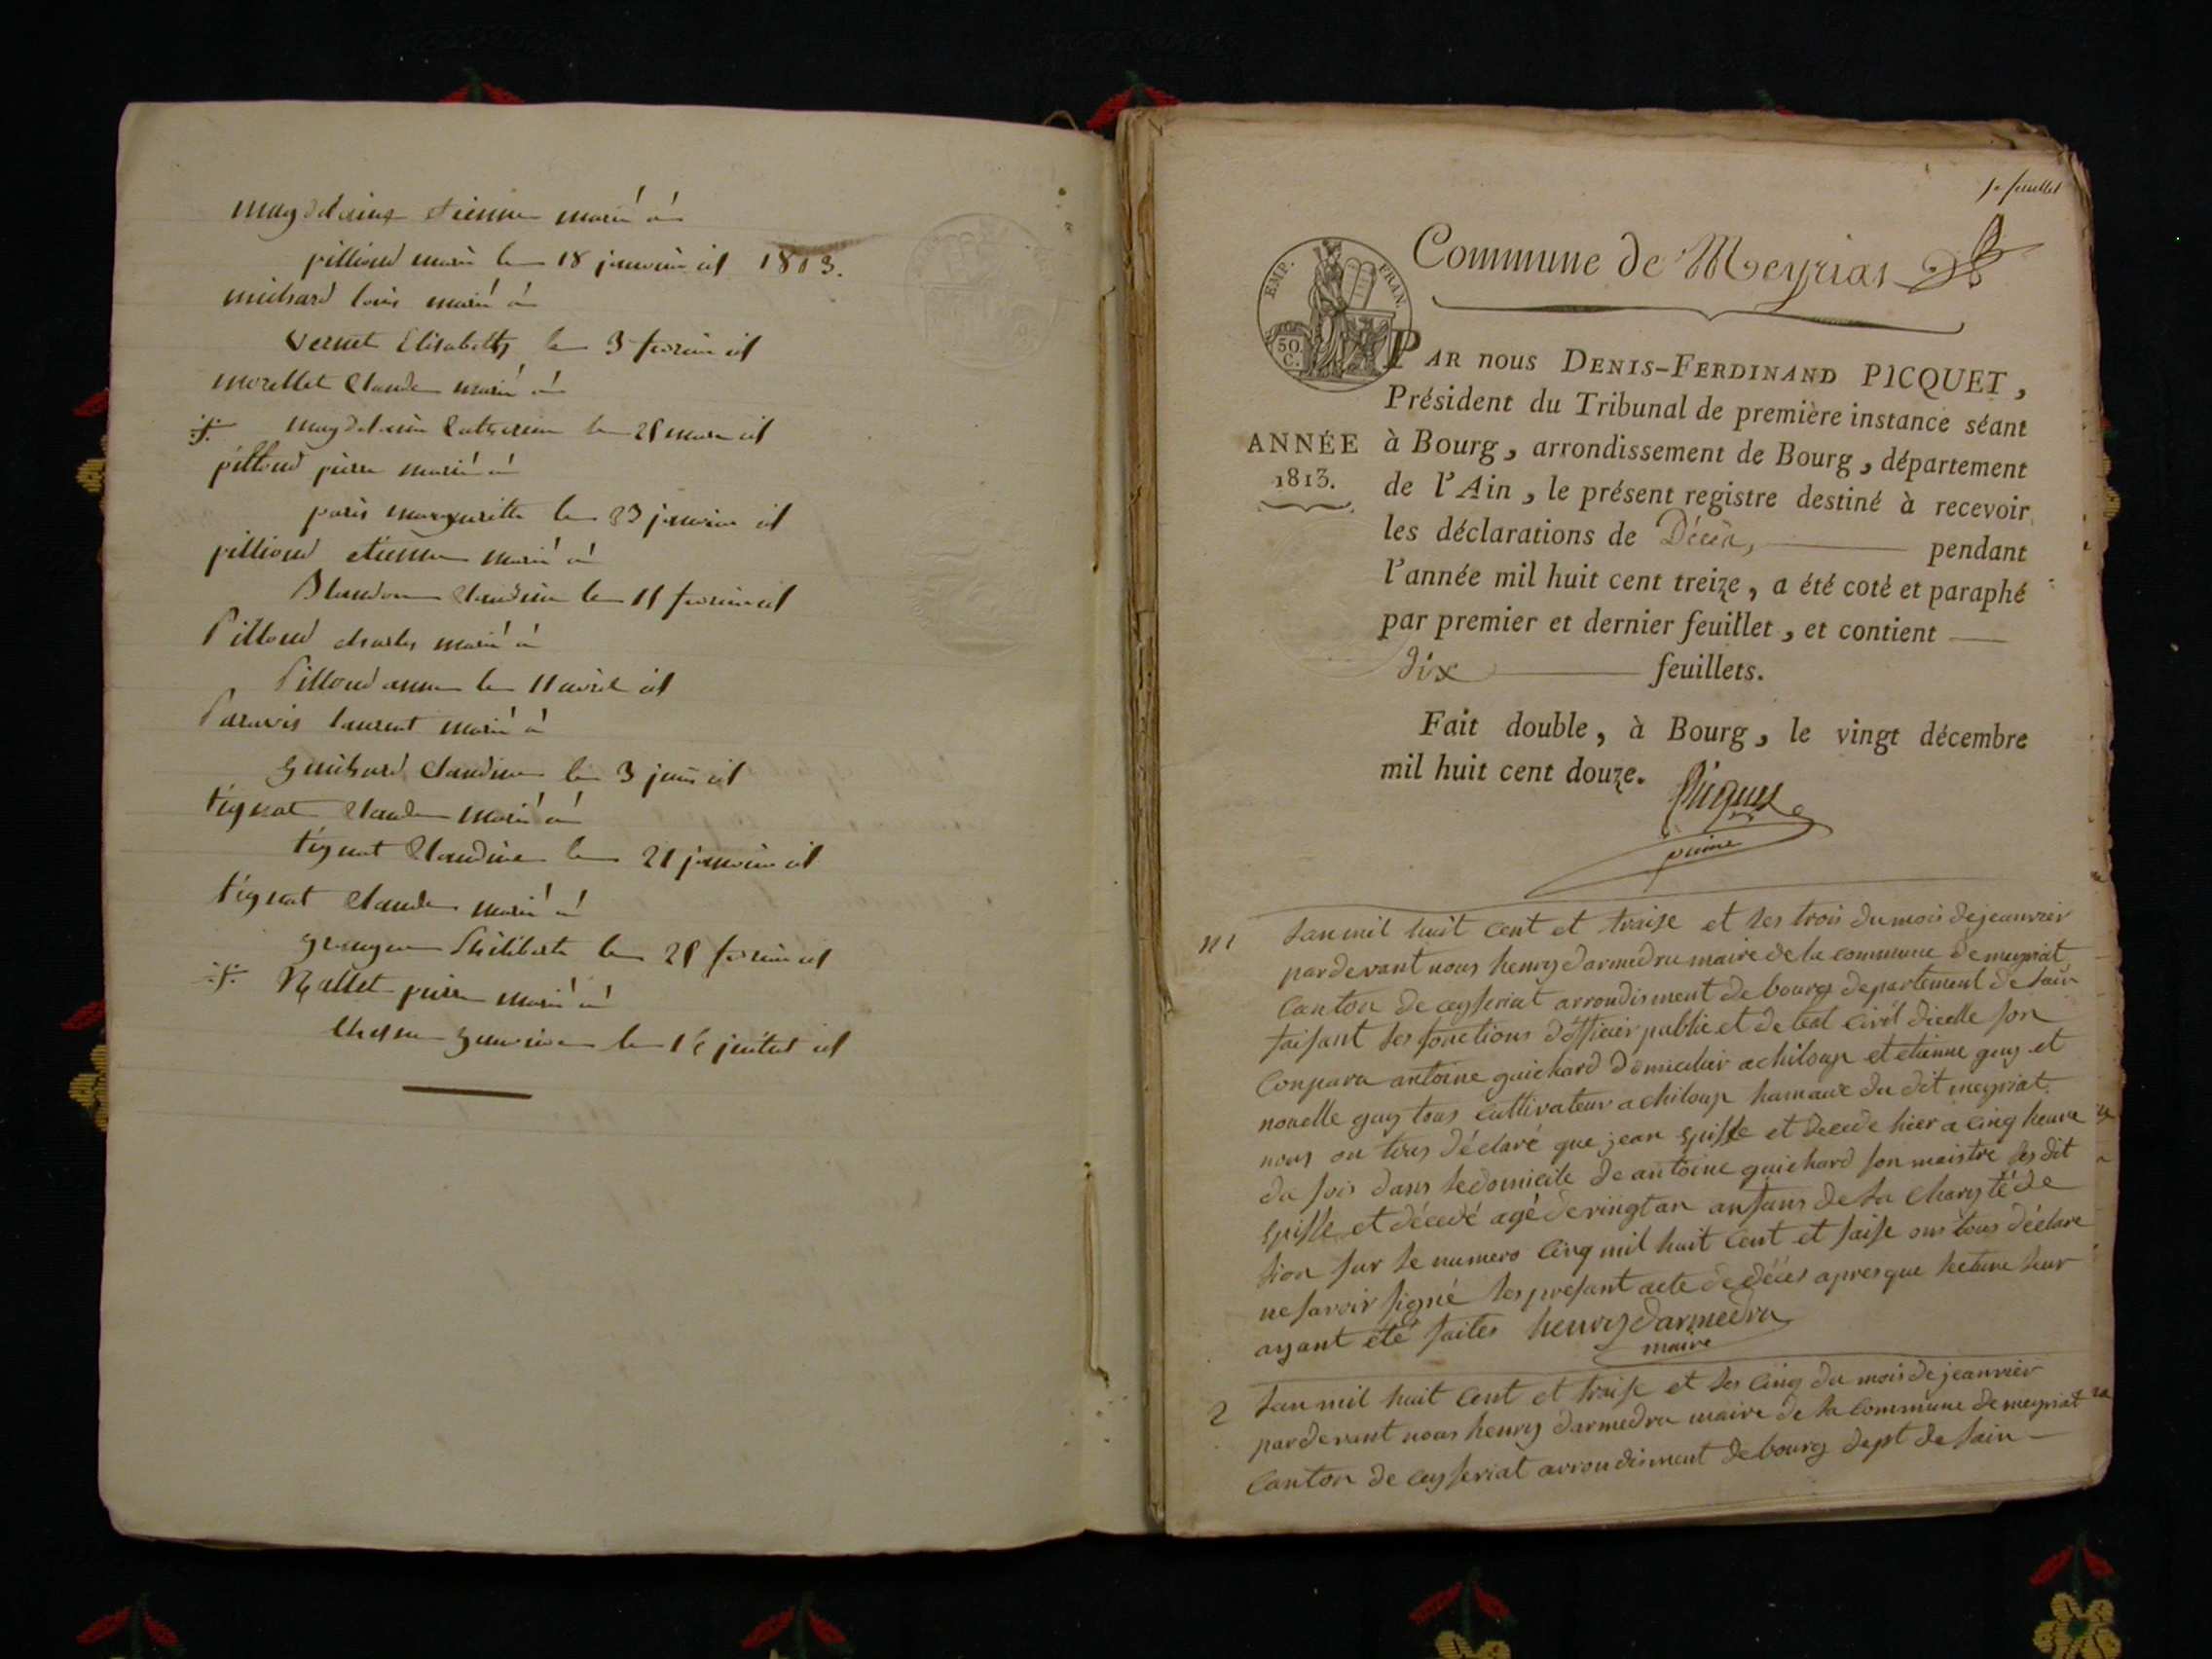 magdelaine etienne marié à
pilliond marie le 18 janvier id 1813.
michard louis marié à
vernet Elisabeth le 3 fevrier id
morellet Claude marié à
magdelaine Catherine le mars id
pillond pierre marié à
paris margueritte le 23 janvier id
pilliond etienne marié à
Blandon Claudine le 11 fevrier id
Pillond charles marié à
Pillond anne le 11 avril id
Paravis laurent marié à
guichard Claudine le 3 juin id
tignat Claude marié à
tignat Claudine le 21 janvier id
tignat Claude marié à
Philiberte le fevrier id
pierre marié à
le juillet id
1er feuillet
Commune de Meyriat
EMP. FRAN.
50 C.
PAR nous DENIS-FERDINAND PICQUET,
Président du Tribunal de première instance séant
ANNÉE à Bourg, arrondissement de Bourg, département
1813. de l'Ain, le présent registre destiné à recevoir
les déclarations de Décès, pendant
l'année mil huit cent treize, a été coté et paraphé
par premier et dernier feuillet, et contient
dix feuillets.
Fait double, à Bourg, le vingt décembre
mil huit cent douze. Picquet
n 1 Lan mil huit cent et traise et les trois du mois de jeanvier
pardevant nous henry darmedru maire de la commune de meyriat
canton de ceyseriat arrondisment de bourg departement de lain
faisant les fonctions d'officier public et de leat civil dicelle son
conparu antoine guichard domicilier a chiloup et etienne guy et
nouelle guy tous cultivateur a chiloup hamaux du dit meyriat
nous on tous déclaré que jean spisse et decede hier a cinq heure
du soir dans le domicile de antoine guichard son maistre les dit
spisse et décedé agé de vingt an anfans de la charyté de
lion sur le numero cinq mil huit cent et saise ons tous déclare
ne savoir signé les presant acte de déces apres que lecture leur
ayant eté faites henry darmedru
maire
2 Lan mil huit cent et traise et les cinq du mois de jeanvier
pardevant nous henry darmedru maire de la commune de meyriat
canton de ceyseriat arrondisment de bourg dept de lain